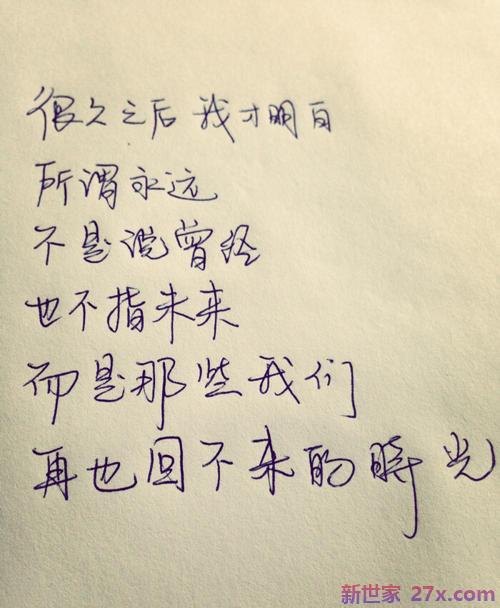 很久之后我才明白
所谓永远
不是说曾经
也不指未来
而是那些我们
再也回不来的时光
新世家 27x.com